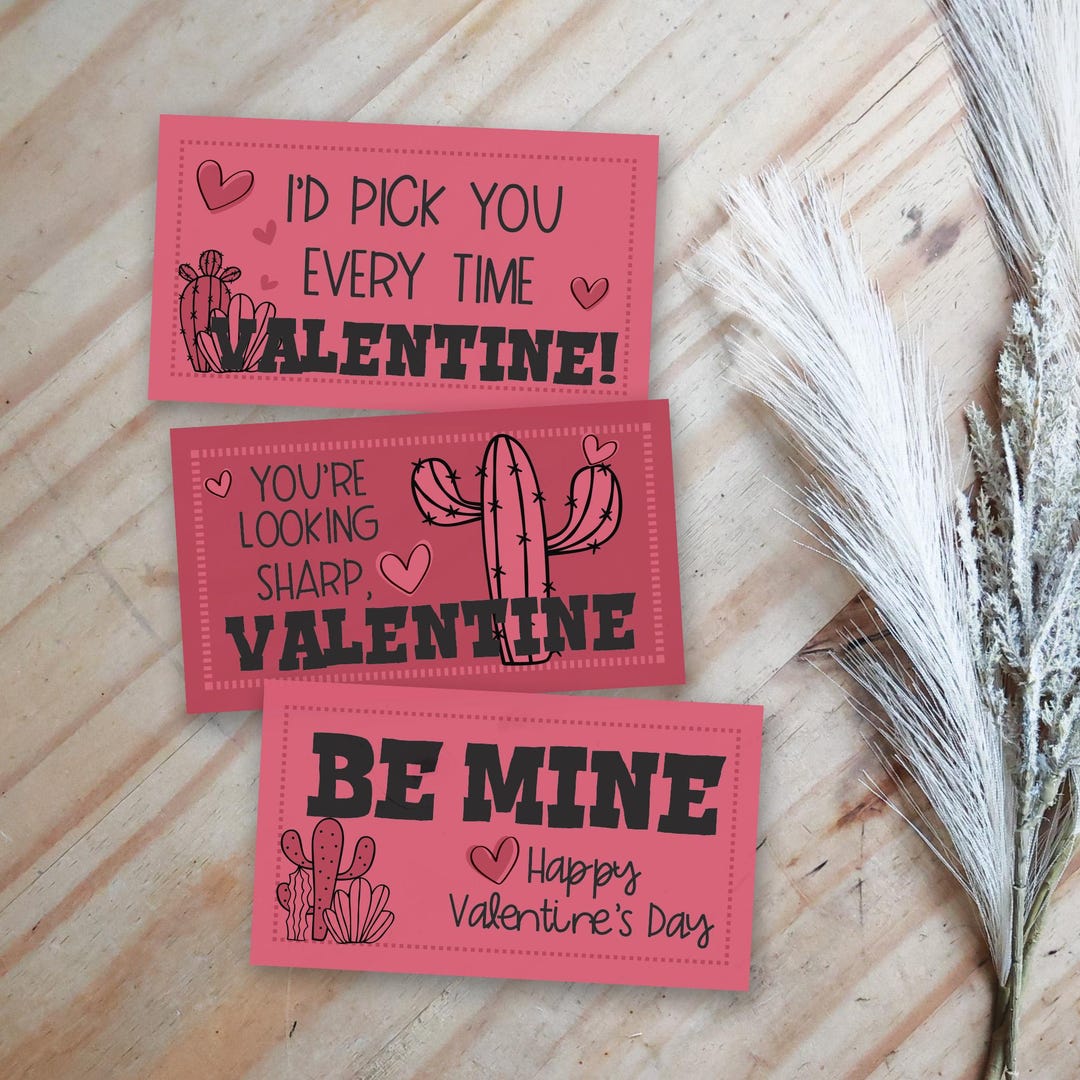 I'D PICK YOU
EVERY TIME
VALENTINE!
YOU'RE
LOOKING
SHARP,
VALENTINE
BE MINE
Happy
Valentine's Day